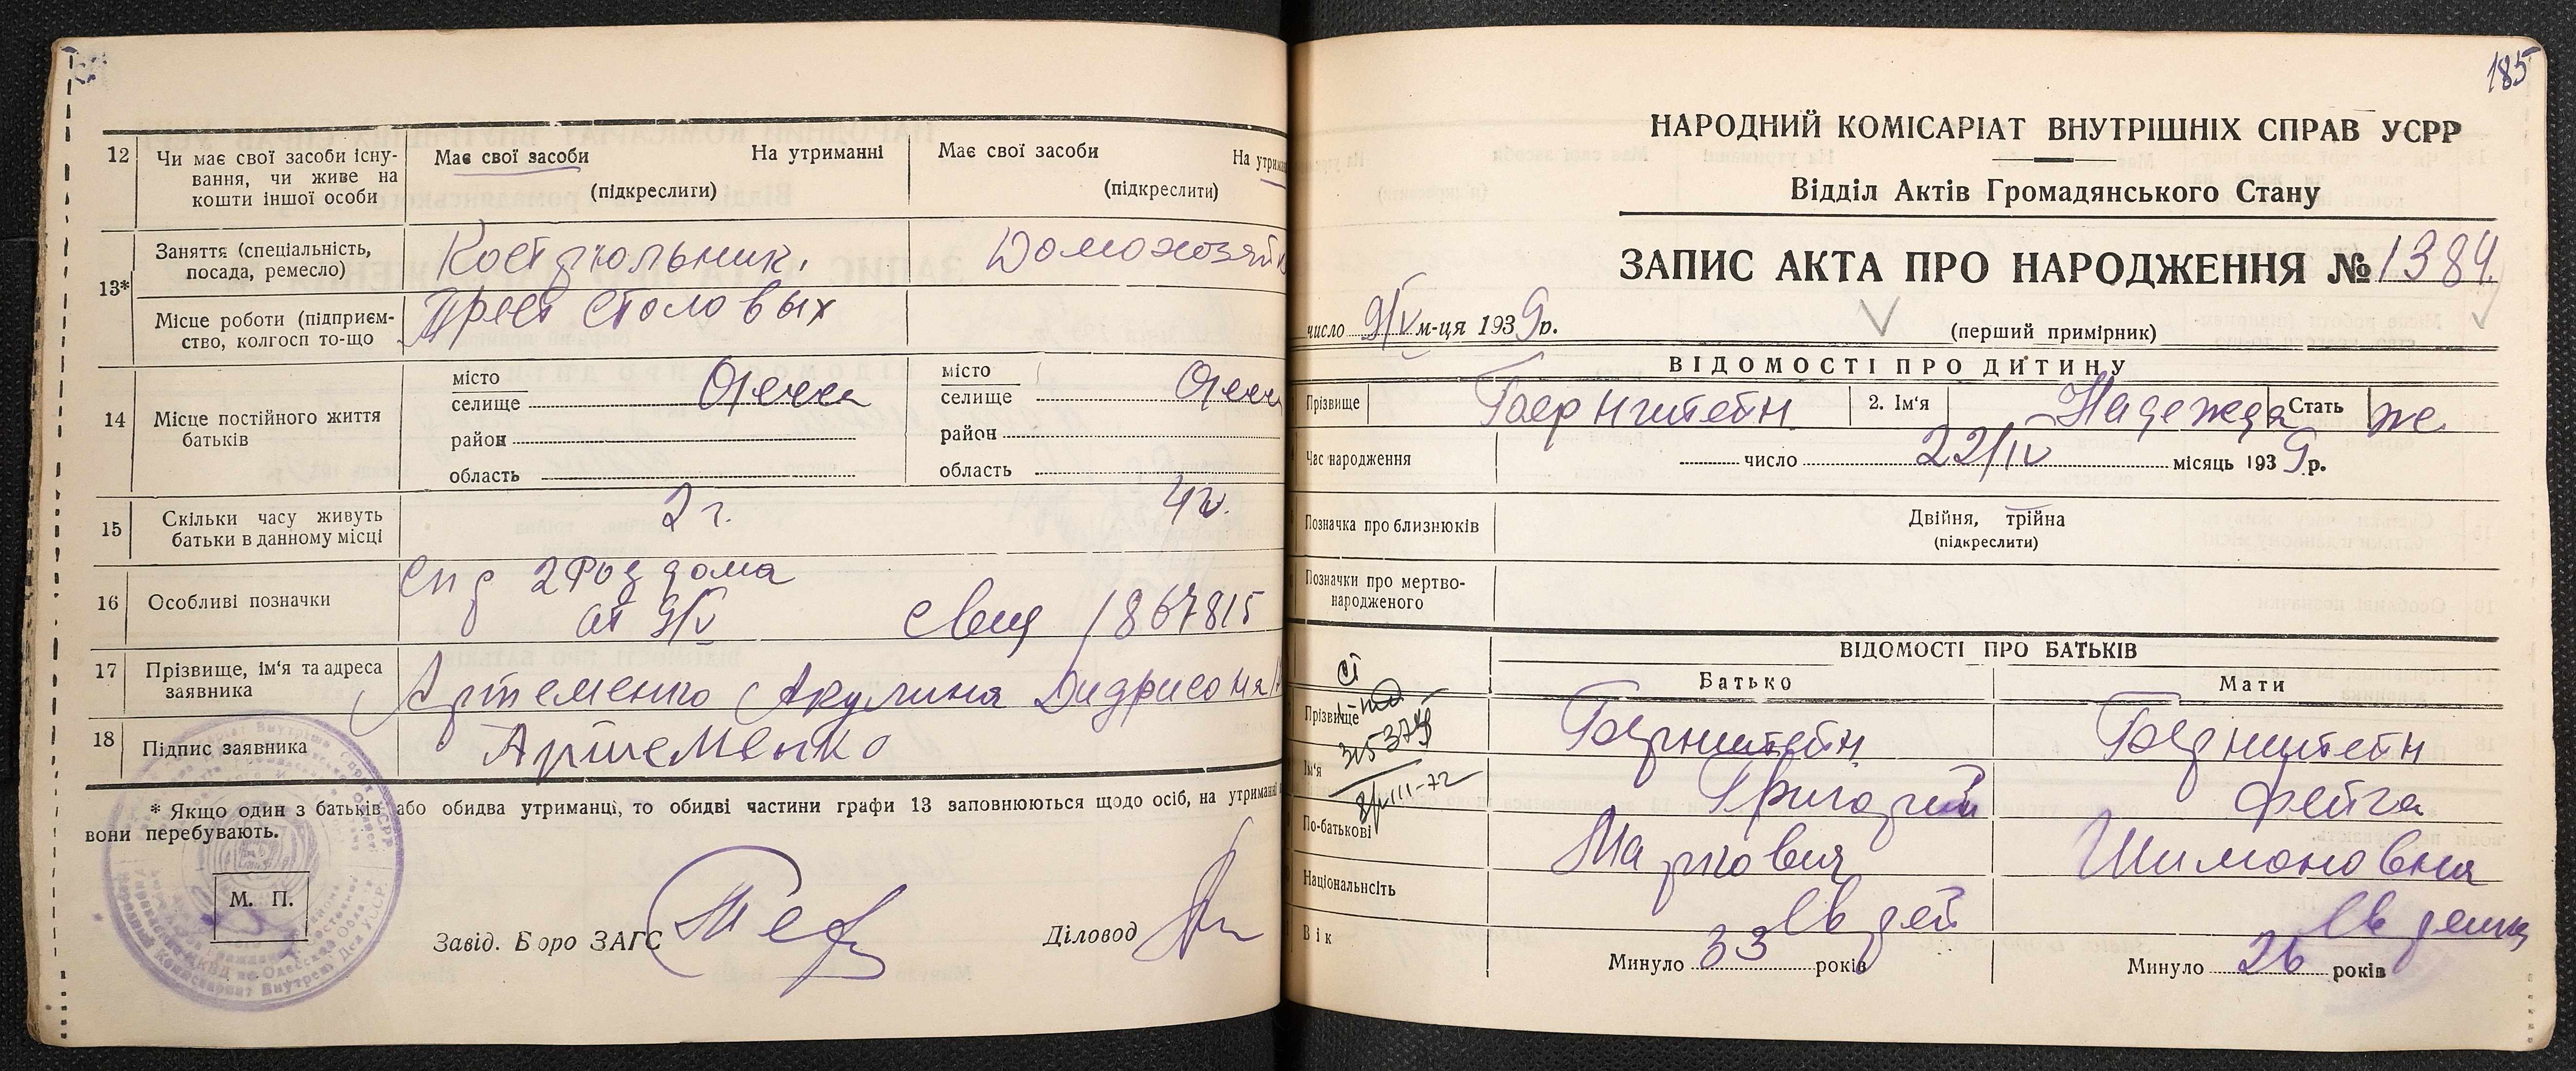 12 Чи має свої засоби існу-
вання, чи живе на
кошти іншої особи
Має свої засоби На утриманні
(підкреслити)
Має свої засоби На утрима
(підкреслити)
13*
Заняття (спеціальність,
посада, ремесло)
Кострюльник. Домохозяйк
Місце роботи (підприєм-
ство, колгосп то-що
Трест столовых
14 Місце постійного життя
батьків
місто
селище Одесса
район
область
місто
селище Одесс
район
область
15 Скільки часу живуть
батьки в данному місці
2 г. 4 г.
16 Особливі позначки
спр 2 Род дома
от 9/V свид 1867815
17 Прізвище, ім'я та адреса
заявника
Артеменко Акулина
18 Підпис заявника
Артеменко
* Якщо один з батьків або обидва утриманці, то обидві частини графи 13 заповнюються щодо осіб, на утриманні
вони перебувають.
М. П.
Завід. Бюро ЗАГС Діловод
185
НАРОДНИЙ КОМІСАРІАТ ВНУТРІШНІХ СПРАВ УСРР
Відділ Актів Громадянського Стану
ЗАПИС АКТА ПРО НАРОДЖЕННЯ № 1384
число 9/V м-ця 1939р.
(перший примірник)
ВІДОМОСТІ ПРО ДИТИНУ
Прізвище Бернштейн 2. Ім'я Надежда Стать же
Час народження число 22/IV місяць 1939 р.
Позначка про близнюків
Двійня, трійня
(підкреслити)
Позначки про мертво-
народженого
ВІДОМОСТІ ПРО БАТЬКІВ
Батько Мати
Прізвище Бернштейн Бернштейн
Ім'я Григорий Фейга
По-батькові Маркович Шимоновна
Національнсіть Еврей Еврейка
Вік
Минуло 33 років Минуло 26 років
8/VIII-72